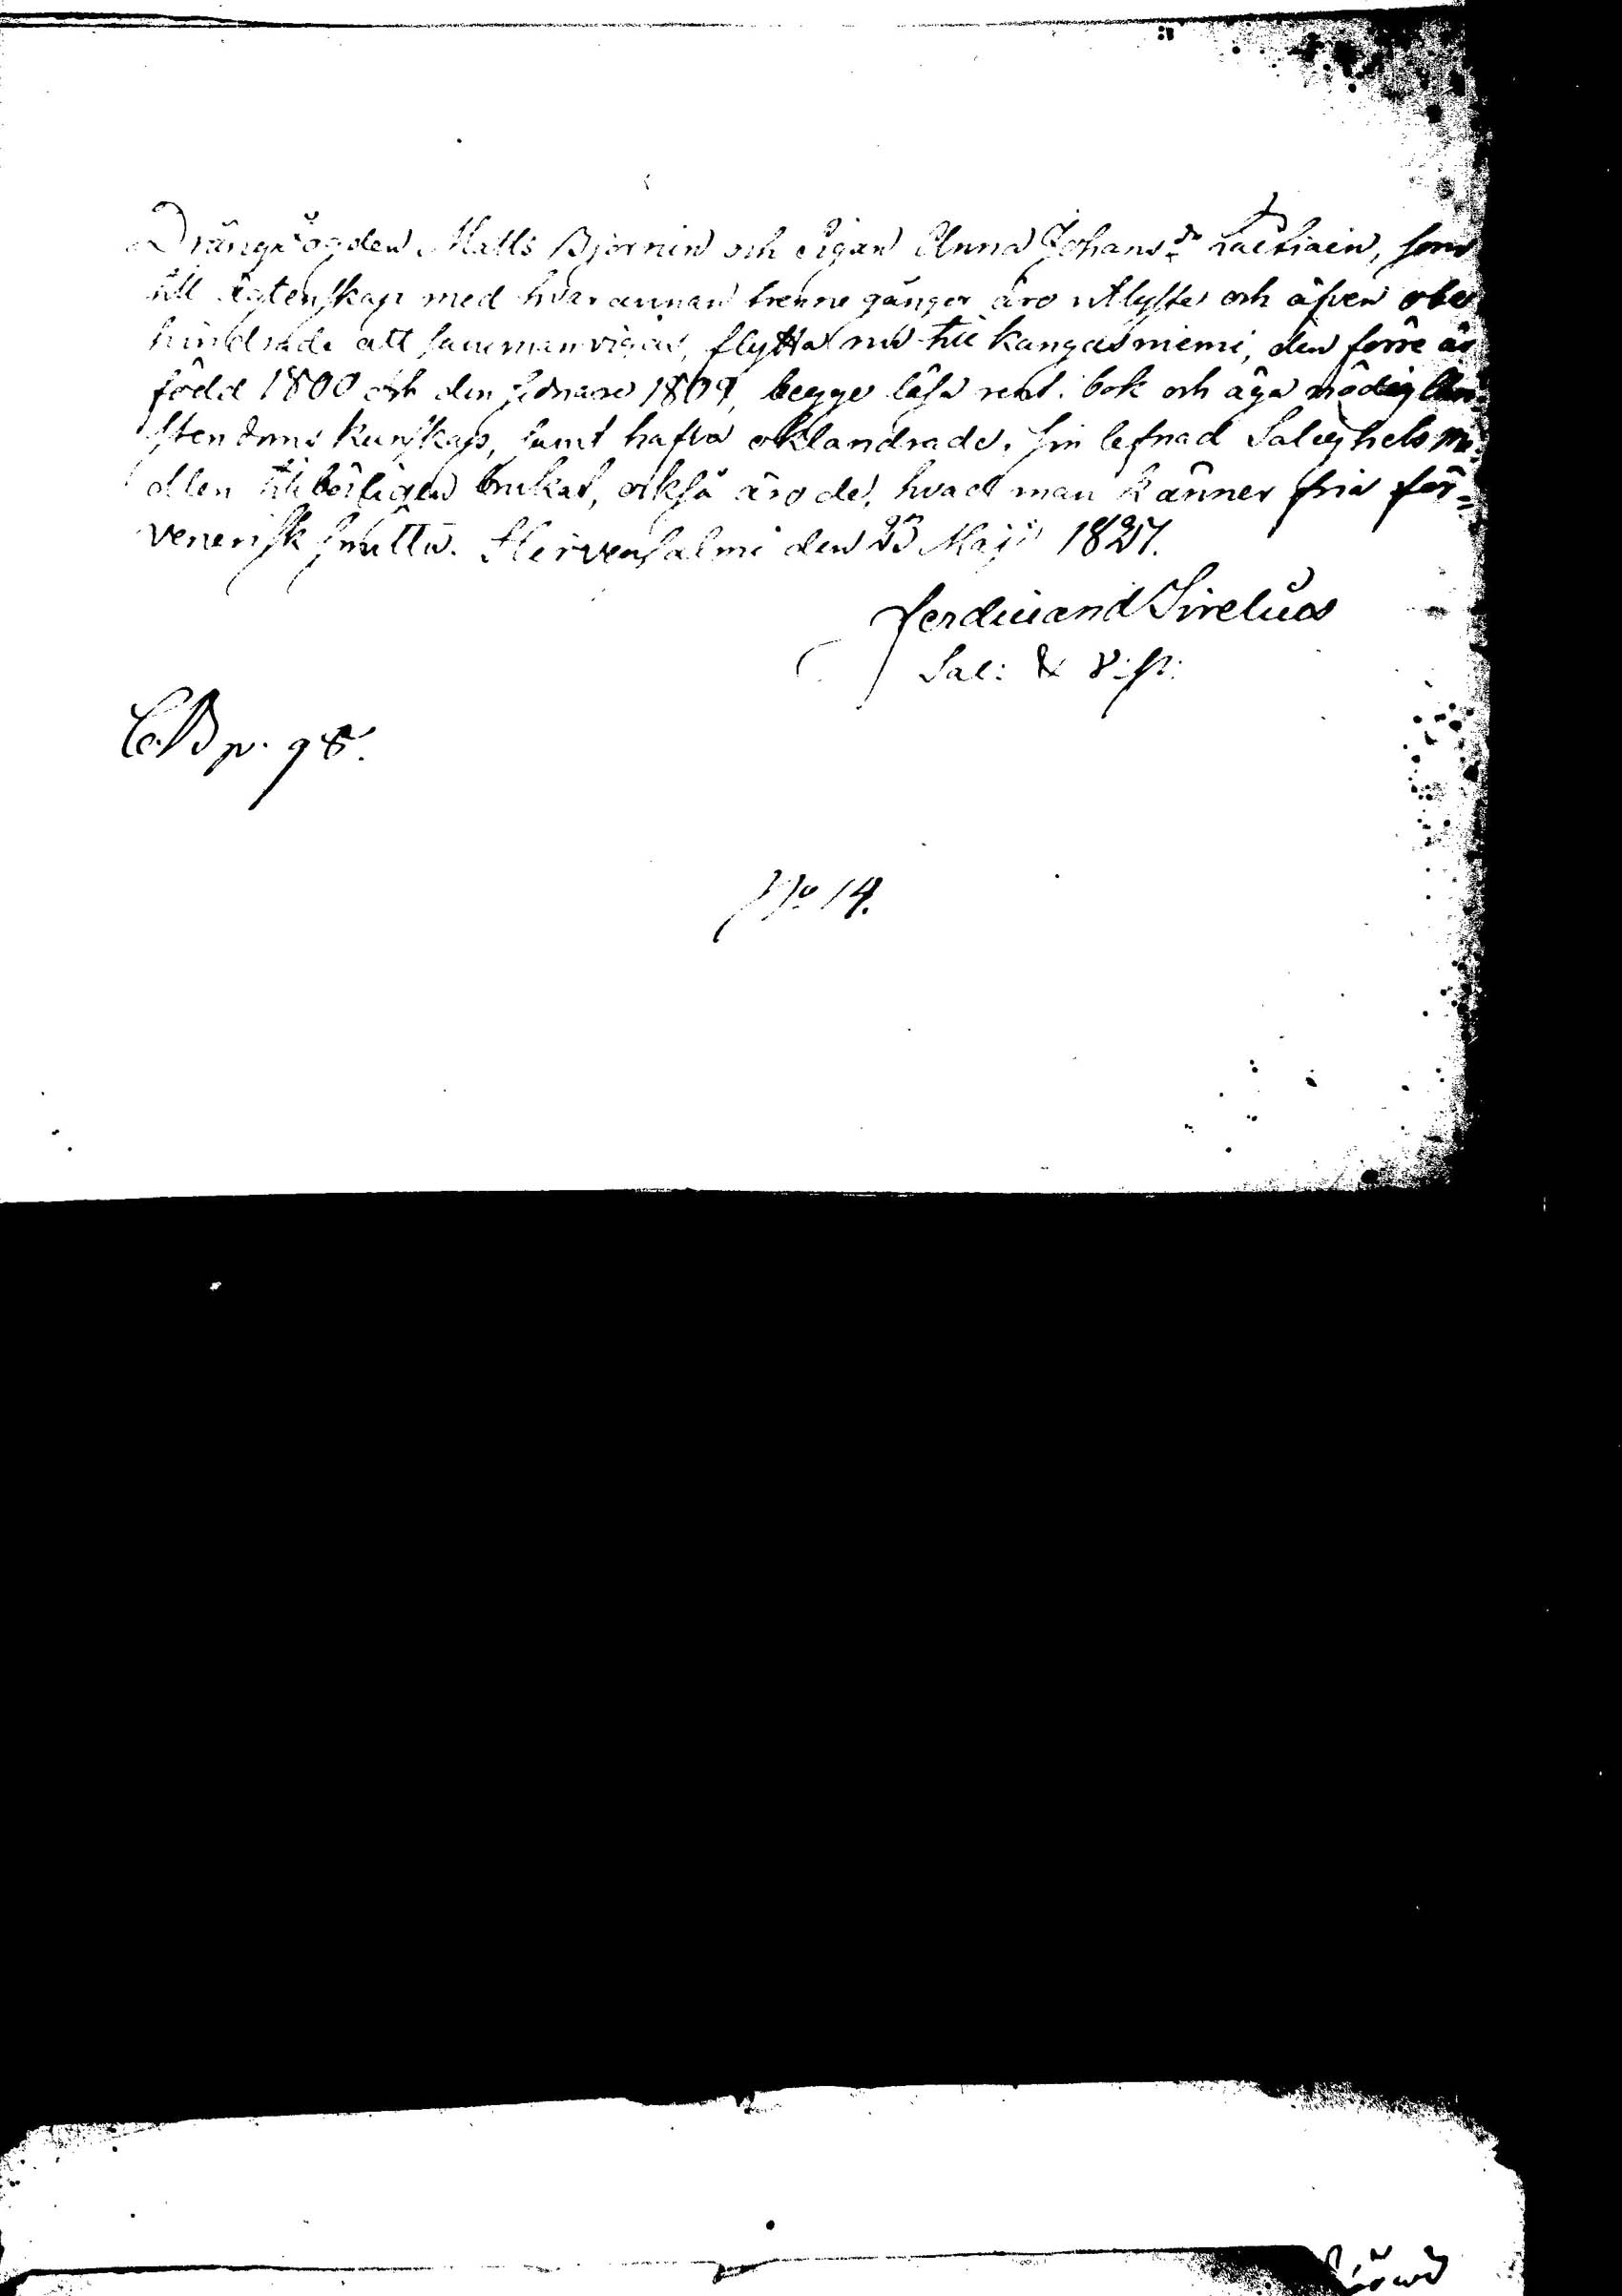 Drängen ogden Matts Björnin och Pigan Anna Johansdr Laitiain, som
till ägtenskap med hvarannan trenne gånger äro utlyste och äfven obe
hindrade att sammanvigas, flytta nu till Kangasniemi, den förre är
född 1800 och den sednare 1809, begge läsa rent i bok och äga nödig Chri
stendoms kunskap, samt hafva oklandrade i sin lefnad Salighets me
dlen tillbörligen brukat, också äro de, hvad man känner fria för
venerisk smitta. Hirvensalmi den 23 Maji 1827.
Ferdinand Sirelius
Sac: & V:p:
C.B p. 98.
No 14.